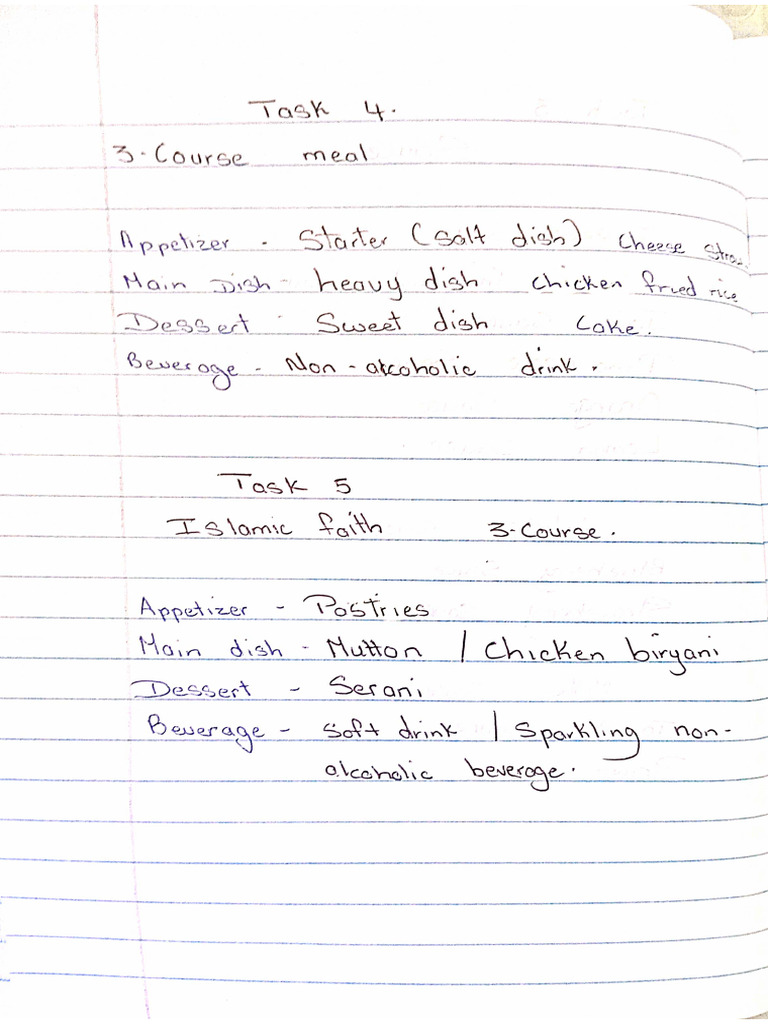 Task 4.
3-Course meal
Appetizer - Starter (Salt dish) Cheese
Main Dish - heavy dish chicken fried rice
Dessert - Sweet dish Cake.
Beverage - Non-alcoholic drink.
Task 5
Islamic faith 3-Course.
Appetizer - Pastries
Main dish - Mutton / Chicken biryani
Dessert - Serani
Beverage - Soft drink / Sparkling non-
alcoholic beverage.